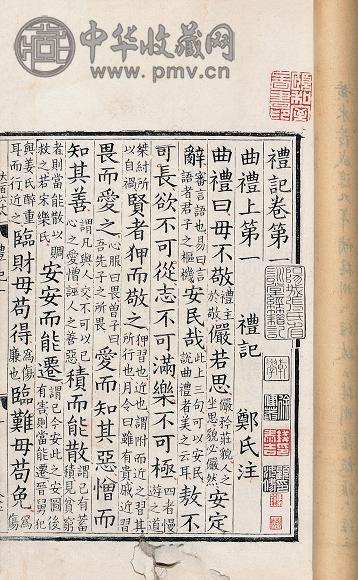 中华收藏网
www.pmv.cn
禮記卷第
曲禮上第一 禮記 鄭氏注
曲禮曰毋不敬禮主於敬儼若思儼矜莊貌人之坐思貌必儼然安定
辭審言語也易曰言語者君子之樞機安民哉此上三句可以安民說曲禮者美之云耳敖不
可長欲不可從志不可滿樂不可極四者慢遊之道
桀紂所以自禍賢者狎而敬之狎習也近也謂附而近之習其所行也月令曰雖有貴戚近習
畏而愛之心服曰畏曾子曰吾先子之所畏愛而知其惡憎而
知其善謂凡與人交不可以己心之愛憎誣人之善惡積而能散謂己有蓄積見貧窮
者則當能散以賙救之若宋樂氏安安而能遷謂己今安此之安圖後有害則當能遷晉舅犯
與姜氏醉重耳而行近之臨財毋苟得為傷廉也臨難毋苟免為傷
禮記一